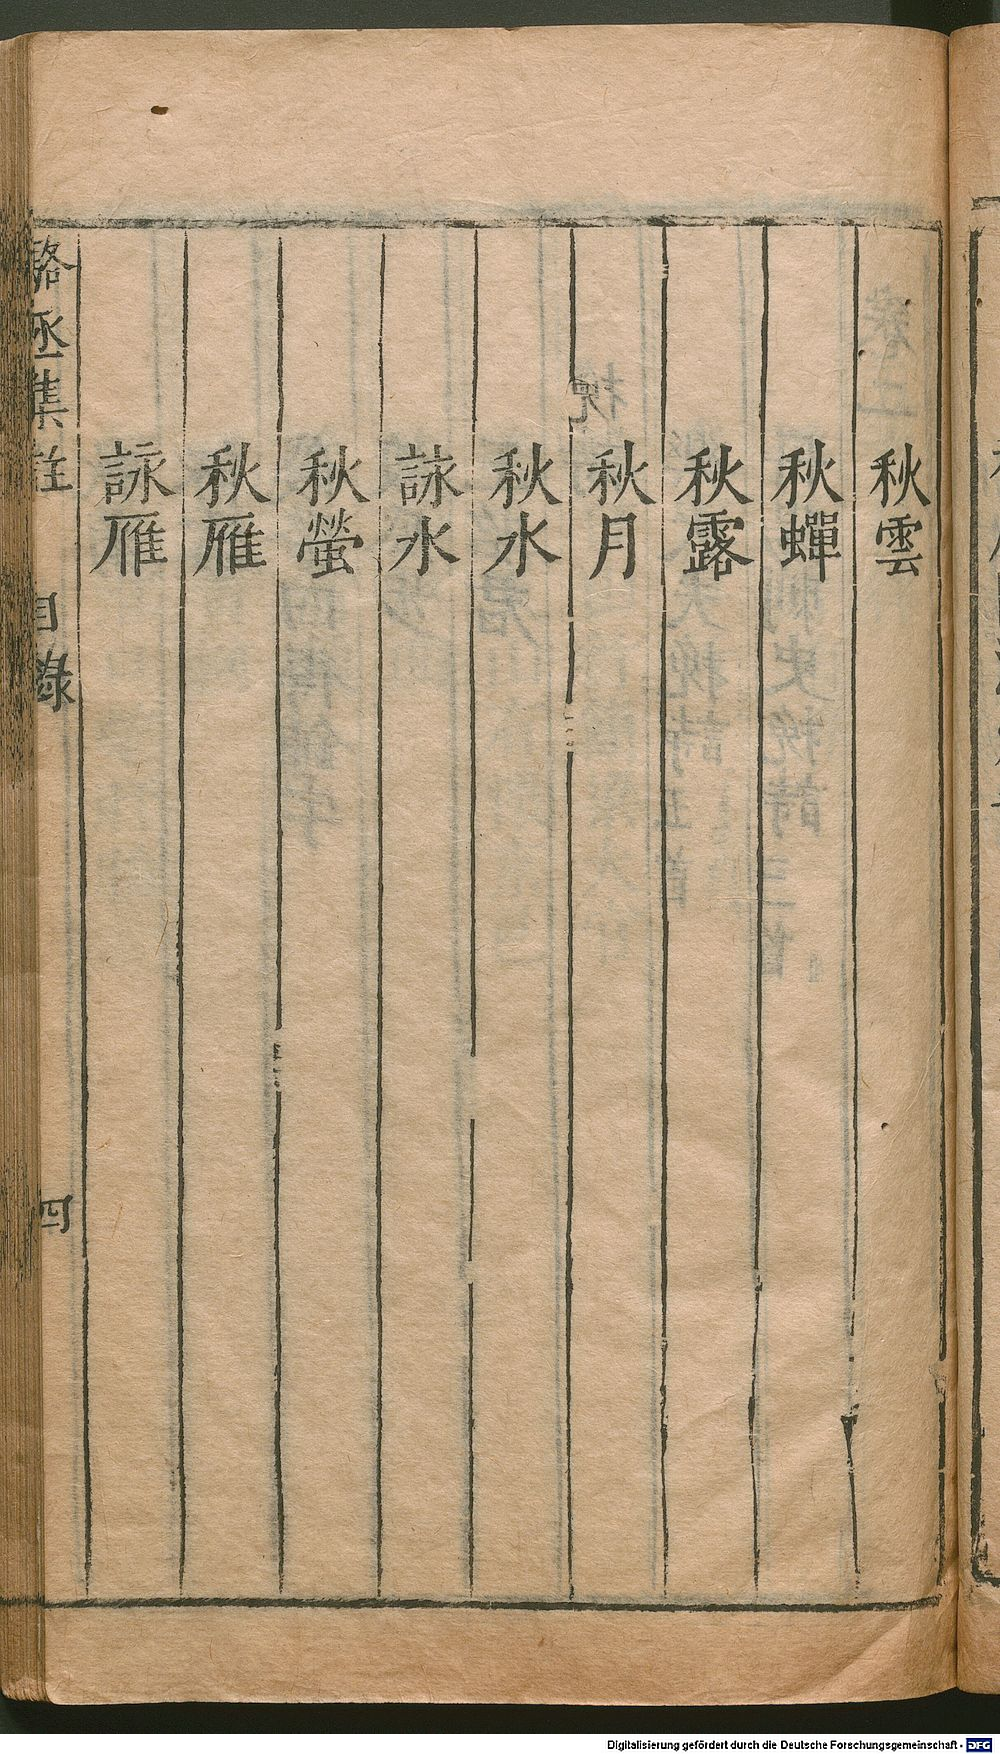 秋雲
秋蟬
秋露
秋月
秋水
詠水
秋螢
秋雁
詠雁
駱丞集註 目錄 四
Digitalisierung gefördert durch die Deutsche Forschungsgemeinschaft - DFG